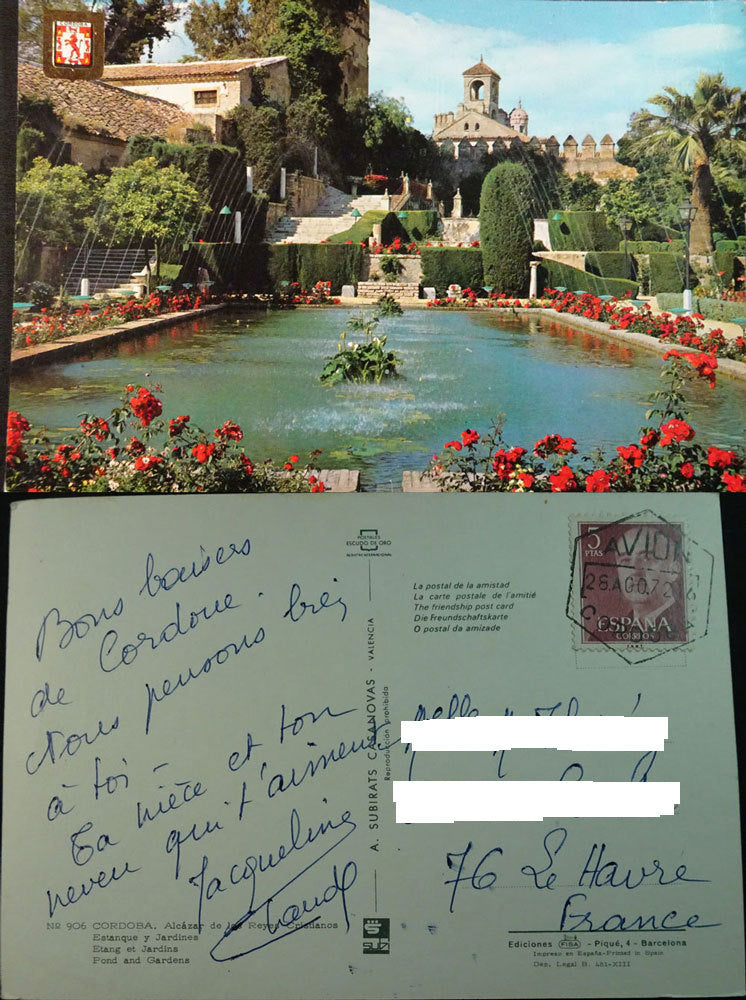 CORDOBA
Bons baisers
de Cordoue.
Nous pensons très
à toi -
Ta nièce et ton
neveu qui t'aiment
Jacqueline
Claude
POSTALES
ESCUDO DE ORO
REGISTRO INTERNACIONAL
A. SUBIRATS CASANOVAS - VALENCIA
Reproducción prohibida
La postal de la amistad
La carte postale de l'amitié
The friendship post card
Die Freundschaftskarte
O postal da amizade
5
PTAS
AVION
28 AGO.72
ESPAÑA
CORREOS
76 Le Havre
France
Nº 906 CORDOBA. Alcázar de los Reyes Cristianos
Estanque y Jardines
Etang et Jardins
Pond and Gardens
Ediciones FISA - Piqué, 4 - Barcelona
Impreso en España-Printed in Spain
Dep. Legal B. 481-XIII